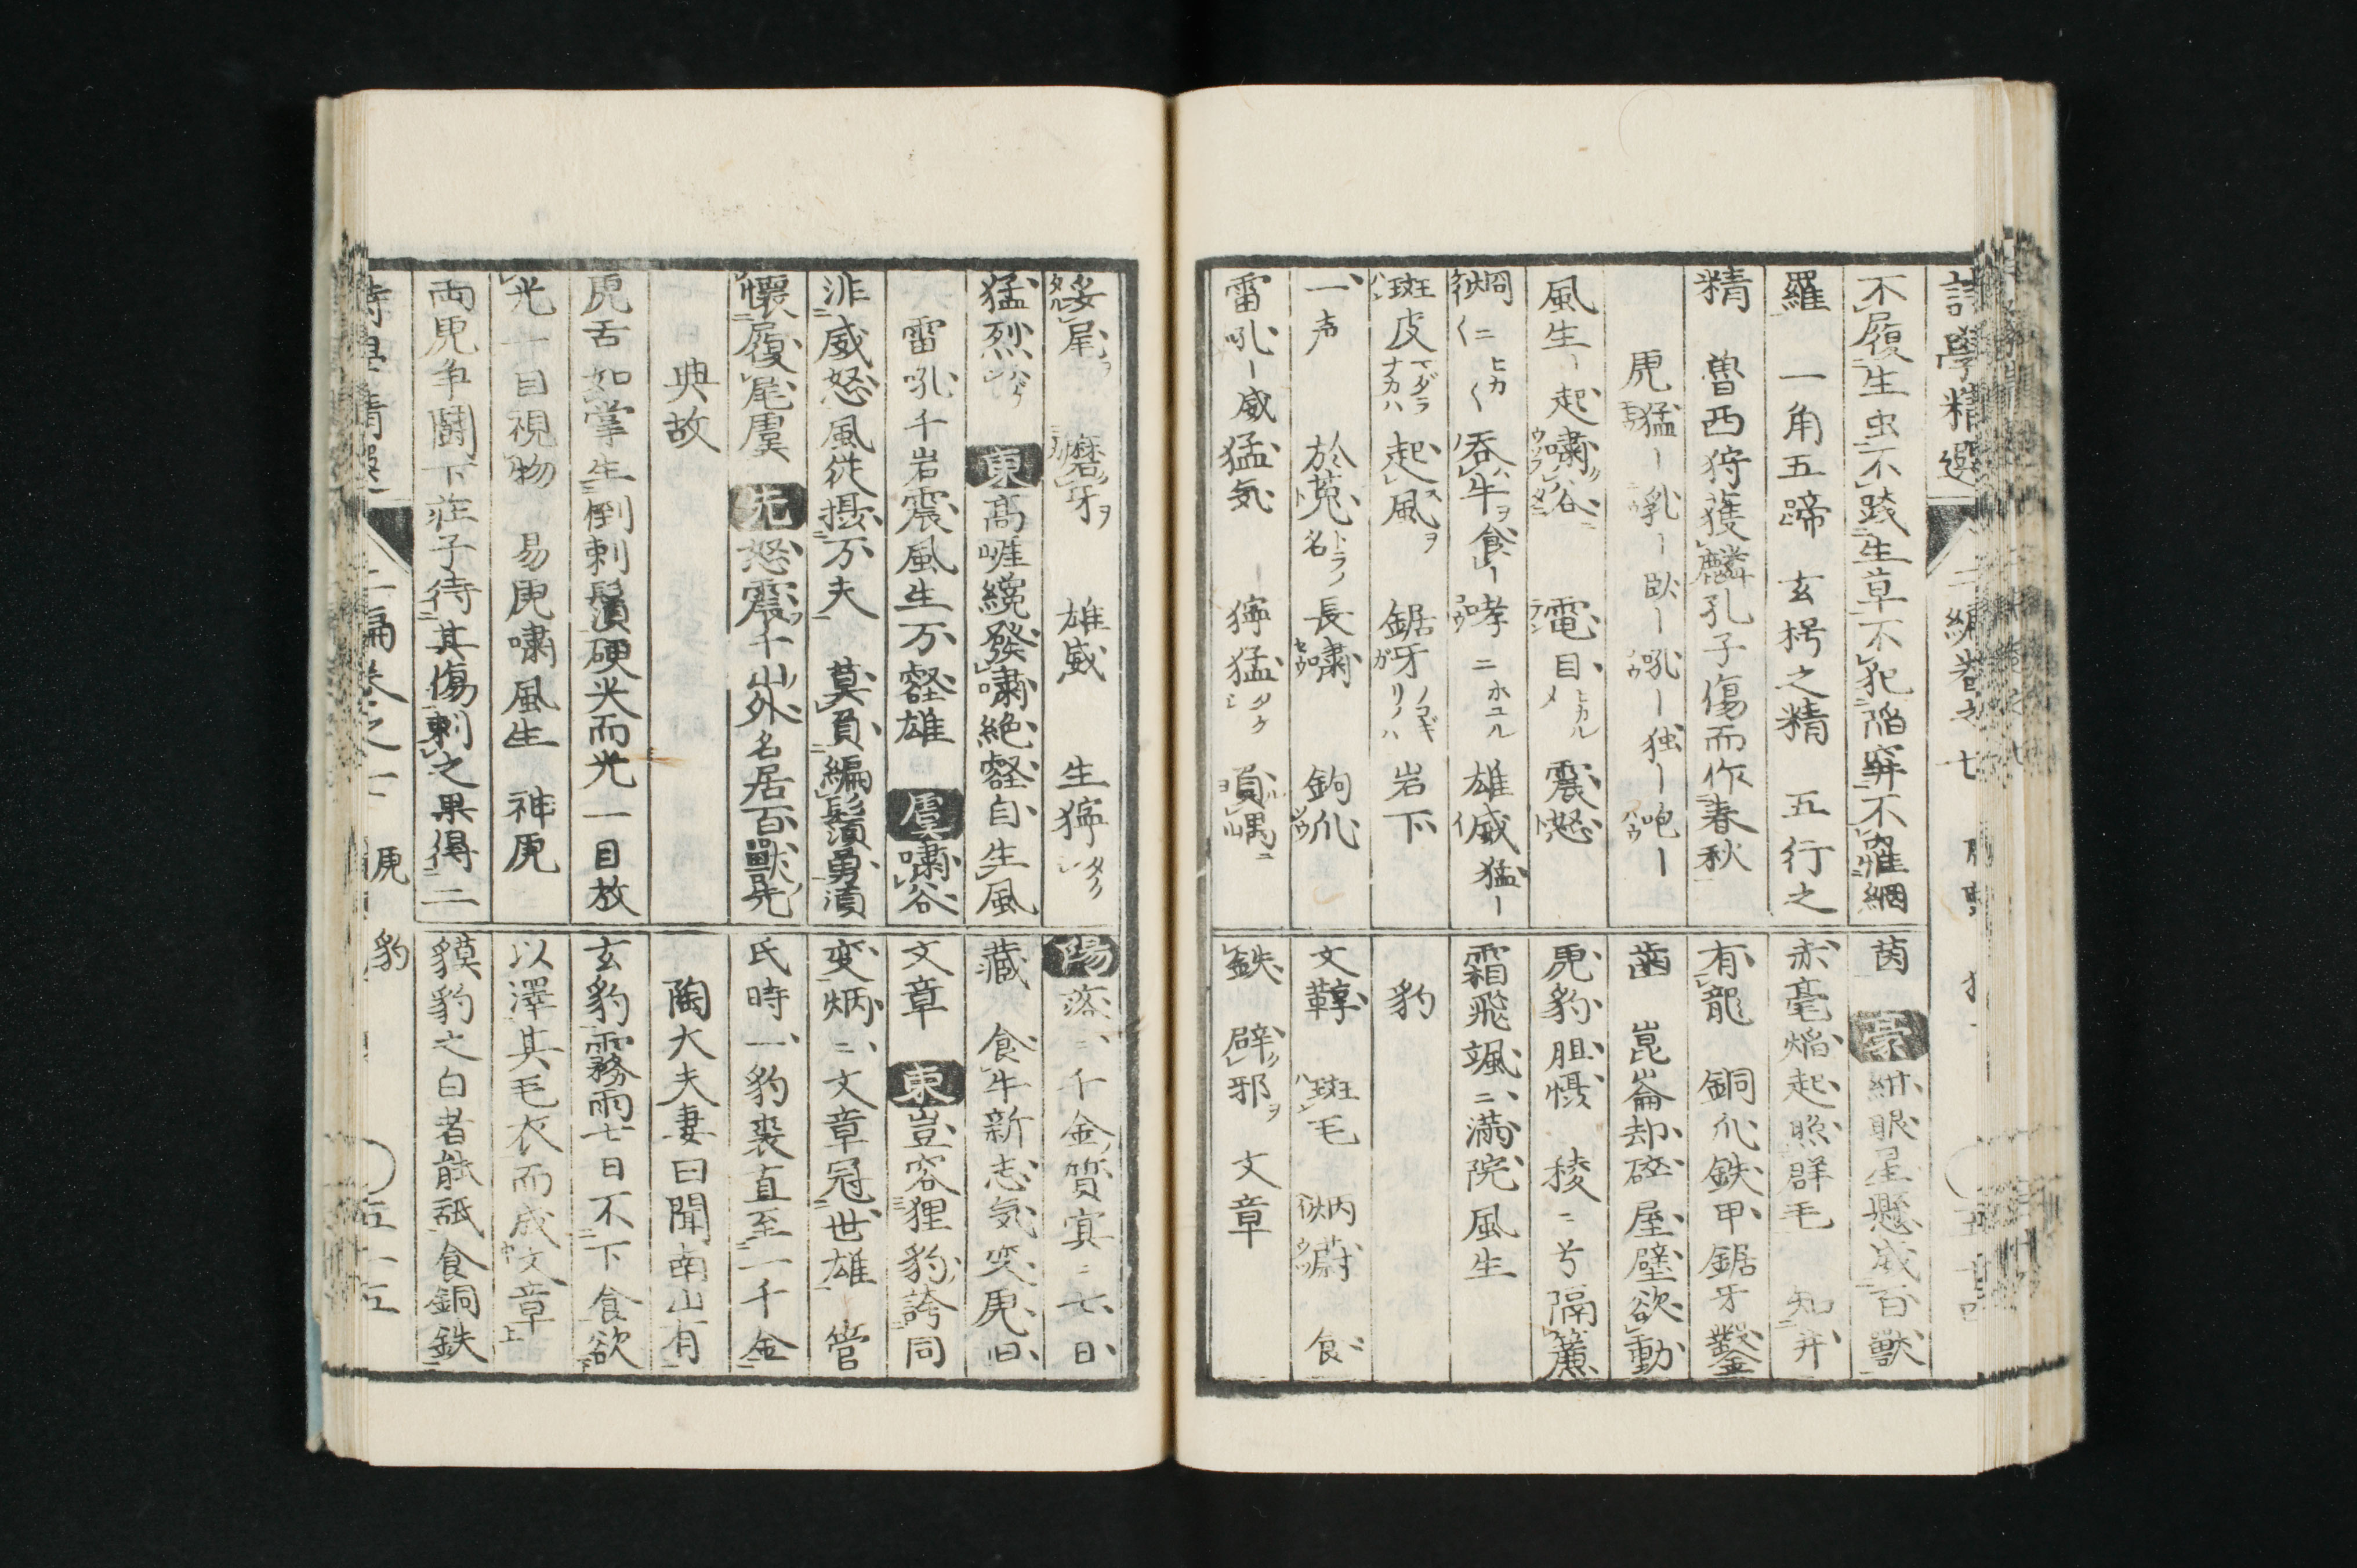 詩學精選 二編卷之七
不履生虫不踐生草不犯陥穽不罹網
羅 一角五蹄 玄枵之精 五行之
精 魯西狩獲麟孔子傷而作春秋
虎 猛ー 乳ー 臥ー 吼ー 独ー 咆ー
風生ー 起嘯谷 電目 震怒
炯々 呑牛食ー 哮ニホユル 雄威 猛ー
斑皮 起風 鋸牙 岩下
一声 於菟トラノ名 長嘯 鉤爪
雷吼ー 威猛気 ー獰猛 負嵎
茵 豪 眼星懸威百獣
赤毫焔起照群毛 知并
有龍 銅爪鉄甲鋸牙鑿
歯 崑崙却碎屋壁欲動
虎豹胆慑 稜ニ兮隔簾
霜飛颯ニ満院風生
豹
文鞟 斑毛 炳蔚 食
鉄 辟邪 文章
妥尾 磨牙 雄威 生獰
猛烈 東 高崕纔發嘯絶壑自生風
雷吼千岩震風生万壑雄 虞 嘯谷
非威怒風従損万夫 莫負編鬚勇須
懐履尾虞 先 怒震千山外名居百獣先
典故
虎舌如掌生倒刺鬚硬尖而光一目放
光一目視物 易虎嘯風生 神虎
両虎争闘卞荘子待其傷刺之果得二
陽 落ニ千金質寞ニ七日
藏 食牛新志気変虎旧
文章 東 豈容狸豹誇同
変炳ニ文章冠世雄 管
氏時一豹裘直至一千金
陶大夫妻曰聞南山有
玄豹霧雨七日不下食欲
以澤其毛衣而成文章
貘豹之白者能舐食銅鉄
詩學精選 二編卷之七 虎 豹 五十五